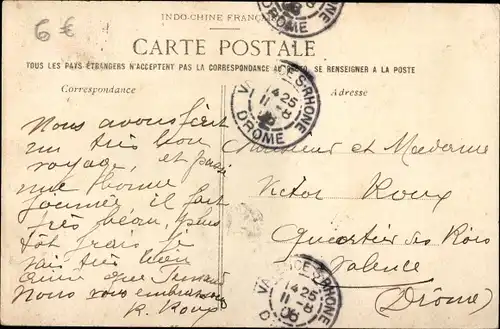 6 €
INDO-CHINE FRANÇAISE
CARTE POSTALE
TOUS LES PAYS ÉTRANGERS N'ACCEPTENT PAS LA CORRESPONDANCE AU RECTO, SE RENSEIGNER A LA POSTE
Correspondance
Adresse
VALENCE-S-RHONE
14 25
11 - 8
06
DROME
Nous avons fait
un très bon
voyage, et passé
une bonne
journée il fait
très beau, plus
tôt frais
très bien
aimé que
Nous vous embrassons
R. Roux
Monsieur et Madame
Victor Roux
Quartier des
Valence
(Drôme)
VALENCE-S-RHONE
14 25
11 - 8
06
DROME